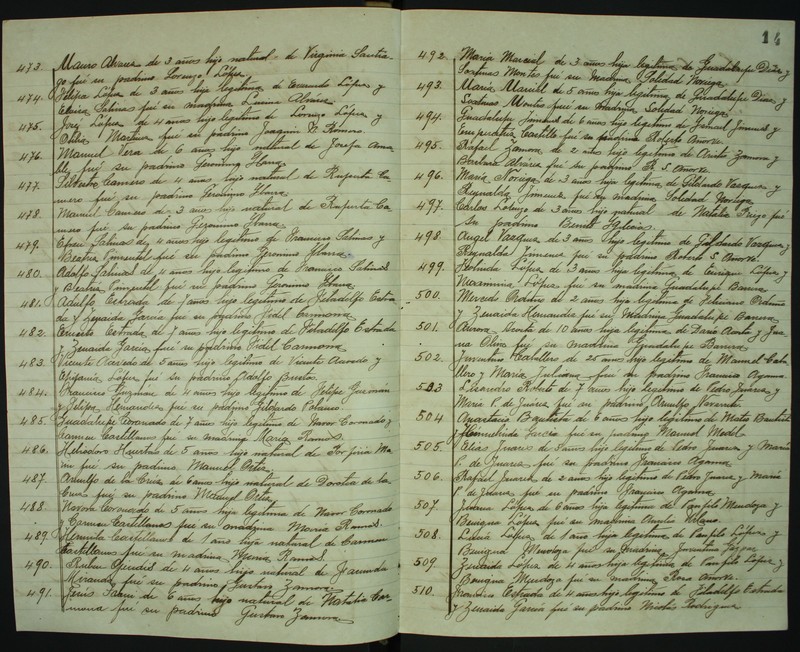 473. Mauro Alvarez de 3 años hijo natural de Virginia Santia-
go fué su padrino Lorenzo López
474. Felipa López de 3 años hija legítima de Exando López y
Elvira Salinas fué su madrina Lucina Alvarez
475. José López de 4 años hijo legítimo de Lorenzo López y
Otilia Montour fué su padrino Joaquin N. Romero.
476. Manuel Vera de 6 años hijo natural de Josefa
fué su padrino Gerónimo Ibarra
477. Camero de 4 años hijo natural de Ruperta Ca-
mero fué su padrino Gerónimo Ibarra.
478. Manuel Camero de 3 años hijo natural de Ruperta Ca-
mero fué su padrino Geronimo Ibarra.
479. Efren Salinas de 4 años hijo legítimo de Francisco Salinas y
Beatriz Pimentel fué su padrino Geronimo Ibarra
480. Adolfo Salinas de 4 años hijo legítimo de Francisco Salinas
y Beatriz Pimentel fué su padrino Geronimo Ibarra
481. Adulfo Estrada de 7 años hijo legítimo de Filadelfo Estra-
da y Zenaida García fué su padrino Fidel Carmona
482. Ernesto Estrada de 7 años hijo legítimo de Filadelfo Estrada
y Zenaida García fué su padrino Fidel Carmona
483. Vicente Acevedo de 5 años hijo legítimo de Vicente Acevedo y
Epifania López fué su padrino Adolfo Bustos.
484. Francisco Guzman de 4 años hijo legítimo de Felipe Guzmán
y Felipa Hernandez fué su padrino Gildardo Polanco.
485. Guadalupe Coronado de 7 años hijo legítimo de Navor Coronado y
Carmen Castellanos fué su madrina Maria Ramos.
486. Heliodoro Huerta de 5 años hijo natural de Porfiria Ma-
rin fué su padrino Manuel Ortiz.
487. Arnulfo de la Cruz de 6 años hijo natural de Dorotea de la
Cruz fué su padrino Manuel Ortiz.
488. Navora Coronado de 5 años hija legítima de Navor Coronado
y Carmen Castellanos fué su madrina Maria Ramos.
489. Herminia Castellanos de 1 año hija natural de Carmen
Castellanos fué su madrina Maria Ramos.
490. Ruben de 4 años hijo natural de Facunda
Miranda fué su padrino Gustavo Zamora
491. Jesús de 6 años hijo natural de Natalia Car-
mona fué su padrino Gustavo Zamora
14
492. María Marcial de 3 años hija legítima de Guadalupe Diaz y
Sostenes Montes fué su Madrina Soledad Noriega.
493. María Muriel de 5 años hija legítima de Guadalupe Diaz y
Sostenes Montes fué su Madrina Soledad Noriega
494. Guadalupe Jimenez de 6 años hijo legítimo de Ismael Jimenez y
Emperatriz Castillo fué su padrino Roberto Onorve
495. Rafael Zamora de 2 años hijo legítimo de Zamora y
Barbara fué su padrino R. S. Onorve
496. María Noriega de 3 años hija legítima de Gildardo Vazquez y
Reynalda Jimenez fué su madrina Soledad Noriega
497. Carlos Lorenzo de 3 años hijo natural de Natalia fué
su padrino Benito
498. Angel Vazquez de 3 años hijo legítimo de Gildardo Vazquez y
Reynalda Jimenez fué su padrino Roberto S. Onorve.
499. López de 3 años hija legítima de Enrique López y
López fué su madrina Guadalupe Barrera
500. Mercedes Orduña de 2 años hija legítima de Februario Orduña
y Zenaida Hernandez fué su Madrina Guadalupe Barrera
501. Aurora Acosta de 10 años hija legítima de Dario Acosta y Jua-
na Oliva fué su madrina Guadalupe Barrera.
502. Juventino Caballero de 25 años hijo legítimo de Manuel Caba-
llero y María Juliana fué su padrino Francisco Agama
503. Lisandro Roberto de 7 años hijo legítimo de Pedro Juárez y
María P. de Juárez fué su padrino Arnulfo
504. Anastacio Bautista de 6 años hijo legítimo de Mateo Bautista
y Hermelinda García fué su padrino Manuel Medel.
505. Elias Juarez de 3 años hijo legítimo de Pedro Juarez y María
P. de Juarez fué su padrino Francisco Agama
506. Rafael Juarez de 2 años hijo legítimo de Pedro Juarez y Maria
P. de Juarez fué su padrino Francisco Agama
507. Juana López de 6 años hija legítima de Panfilo Mendoza y
Benigna López fué su Madrina Amelia
508. Lidia López de 1 año hija legítima de Panfilo López y
Benigna Mendoza fué su madrina Juventina
509. Zenaida López de 4 años hija legítima de Panfilo López y
Benigna Mendoza fué su madrina Rosa Onorve
510. Francisco Estrada de 4 años hijo legítimo de Filadelfo Estrada
y Zenaida García fué su padrino Nicolas Rodriguez